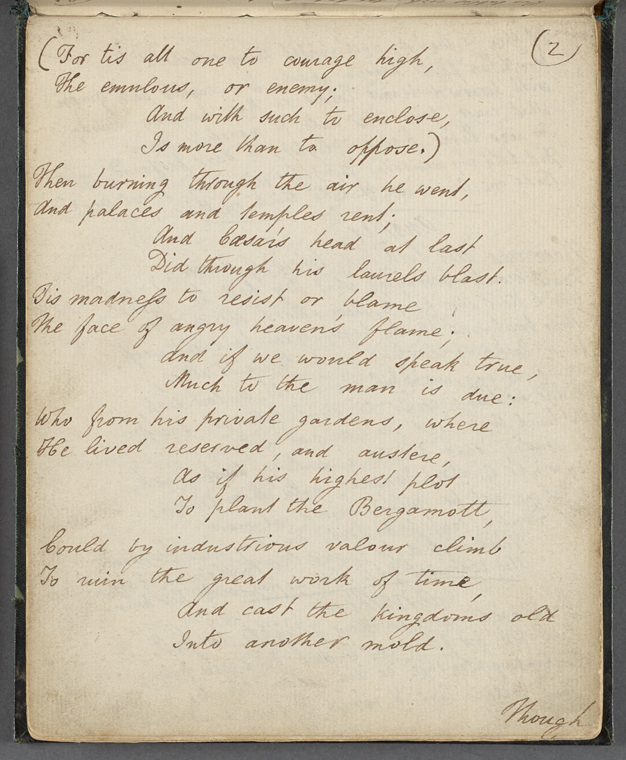 (2)
(For tis all one to courage high,
The emulous, or enemy;
And with such to enclose,
Is more than to oppose.)
Then burning through the air he went,
And palaces and temples rent;
And Cæsar's head at last
Did through his laurels blast.
Tis madness to resist or blame
The face of angry heaven's flame;
And if we would speak true,
Much to the man is due:
Who from his private gardens, where
He lived reserved, and austere,
As if his highest plot
To plant the Bergamott,
Could by industrious valour climb
To ruin the great work of time,
And cast the kingdoms old
Into another mold.
Though